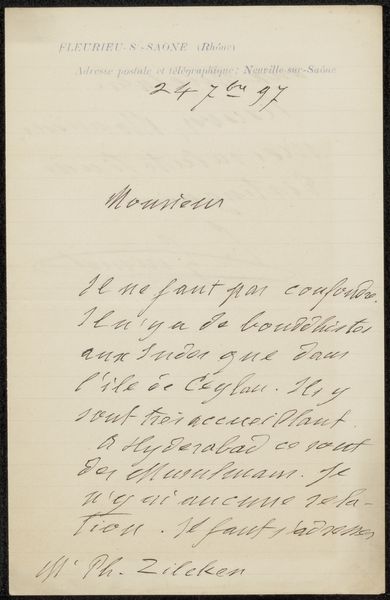 FLEURIEU-S/-SAÔNE (Rhône)
Adresse postale et télégraphique: Neuville-sur-Saône
24 7bre 97
Monsieur
Il ne faut pas confondre.
Il n'y a de bouddhistes
aux Indes que dans
l'île de Ceylan. Ils y
sont très accueillant.
A Hyderabad ce sont
des Musulmans. Je
n'y ai aucune rela-
tion. Il faut s'adresser
Mr Ph. Zilcken